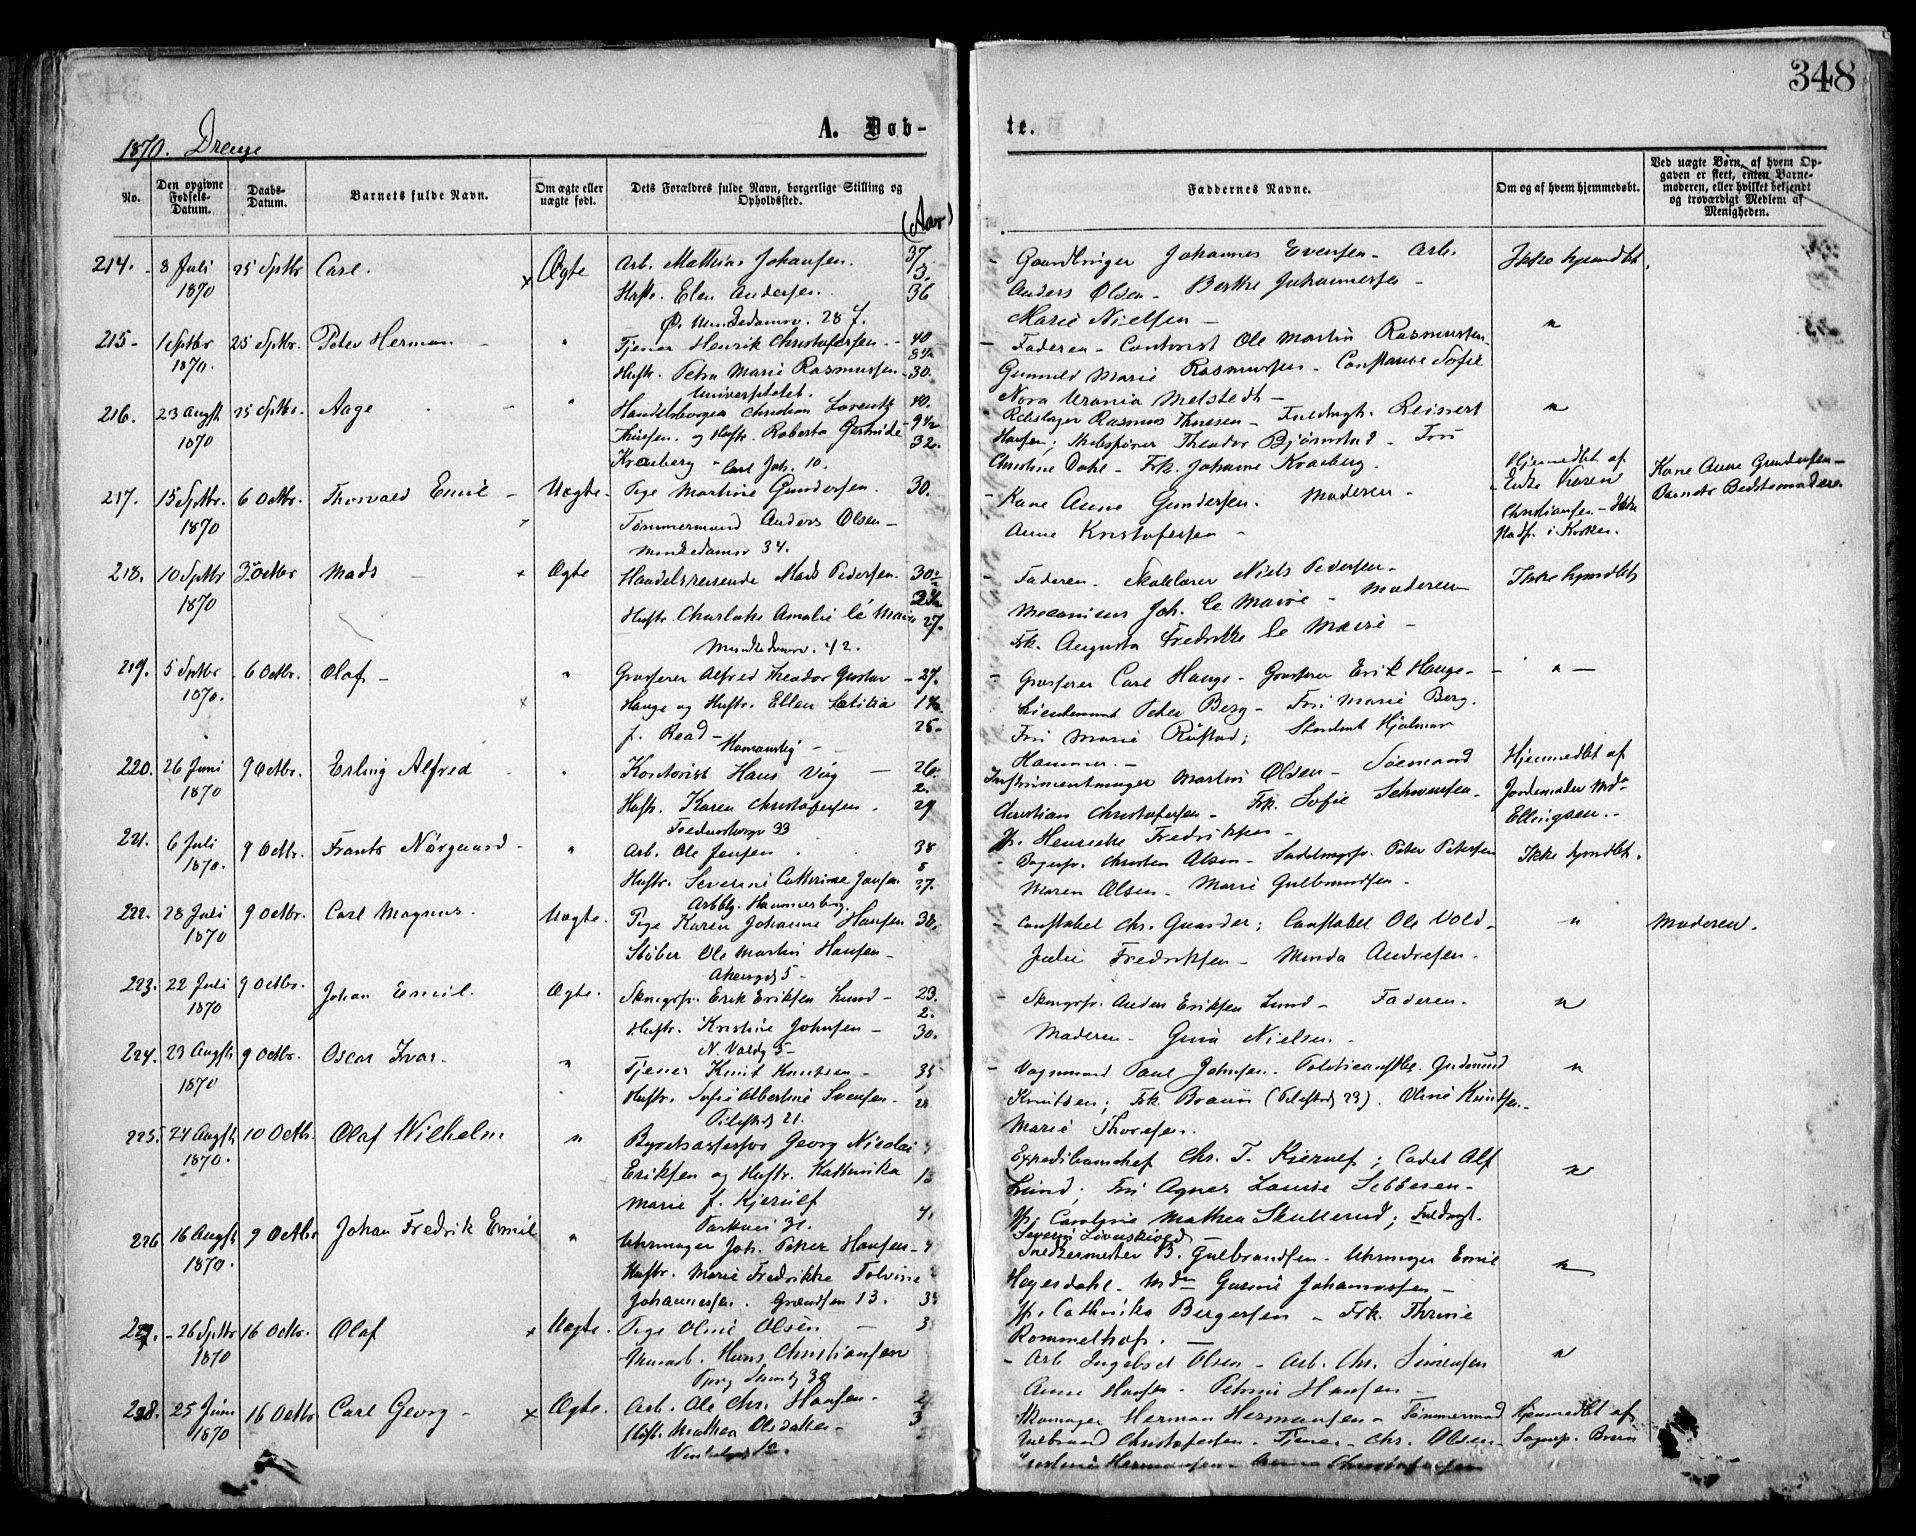 348
1870. Drenge
A. Døb-
te.
No.
Den opgivne Fødsels-Datum.
Daabs-Datum.
Barnets fulde Navn.
Om ægte eller uægte født.
Dets Forældres fulde Navn, borgerlige Stilling og Opholdssted.
(Aar)
Faddernes Navne.
Om og af hvem hjemmedøbt.
Ved uægte Børn, af hvem Op-
gaven er skeet, enten Barne-
moderen, eller hvilket bekjendt
og troværdigt Medlem af
Menigheden.
214. 8 Juli 25 Sptbr Carl. Ægte Arb. Mathias Johansen. 37
1870 5
Hustr. Elen Andersen. 36
Johannes Evensen - Arb. Ikke hjmdbt.
Anders Olsen - Berthe Johannessen -
Marie Nielsen -
215 - 1 Sptbr 25 Sptbr. Peter Herman - " Tjener Henrik Christofersen - 40
1870.
Hustr. Petra Marie Rasmussen - 30.
Universitetet.
Faderen - Contorist Ole Martin Rasmussen - "
Gunnild Marie Rasmussen - Constance Sofie
Nora Urania Melstedt -
216. 23 Augst 25 Sptbr. Aage " Handelsborger Christian Lorentz 40.
1870
Thiesen. og Hustr. Roberta Gertrude 32.
Kraeberg - Carl Joh. 10.
Rebslager Rasmus Thiesen - Fuldmgt. Reinert "
Hansen; Skibsfører Theodor Bjørnstad - Fru
Christine Dahl - Frk. Johanne Kraeberg.
217. 15 Sptbr. 6 Octbr. Thorvald Emil - Uægte. Pige Martine Gundersen. 30.
1870
Tømmermand Anders Olsen -
Munkedamsv 34.
Kone Anne Gundersen. Moderen -
Anne Kristofersen -
Hjemmedbt af
Enke Karen
Christiansen -
i Kirken.
Kone Anne Gundersen -
Barnets Bedstemoder.
218. 10 Sptbr 3 Octbr Mads - Ægte Handelsreisende Mads Pedersen. 30
1870
Hustr. Charlotte Amalie le Maire 27.
Munkedamsv. 42.
Faderen. Skolelærer Niels Pedersen - Ikke hjmdbt
Mecanicus Joh. le Maire - Moderen
Frk. Augusta Fredrikke le Maire -
219. 5 Sptbr 6 Octbr. Olaf - " Grosserer Alfred Theodor Gustav - 27.
1870.
Hauge og Hustr. Ellen Lætitia
f. Read - 25.
Homansbg -
Grosserer Carl Hauge - Grosserer Erik Hauge - "
Lieutenant Peter Berg - Fru Marie Berg.
Fru Marie Rustad; Student Hjalmar
Hammer. -
220. 26 Juni 9 Octbr. Erling Alfred " Kontorist Hans Vig - 26.
1870 2.
Hustr. Karen Christofersen. 29
33
Instrumentmager Martin Olsen - Sømand
Christian Christofersen - Frk. Sofie Schwensen -
Jfr. Henriette Fredriksen -
Hjemmedbt af
Jordemoder Md.
Ellingsen. -
221. 6 Juli 9 Octbr. Frants Nørgaard - " Arb. Ole Jensen 38
1870. 8
Hustr. Severine Cathrine Jansen 37.
Arbblg. Hammersborg.
Christen Olsen - Peter Petersen Ikke hjmdbt.
Maren Olsen - Marie Gulbrandsen -
222. 28 Juli 9 Octbr. Carl Magnus. Uægte. Pige Karen Johanne Hansen 30.
1870
Støber Ole Martin Hansen -
Akersgd 5 -
Constabel Chr. Gunder; Constabel Ole Vold - " Moderen.
Julie Fredriksen - Minda Andresen.
223. 22 Juli 9 Octbr. Johan Emil. Ægte. Skmgrsv. Erik Eriksen Lund - 23.
1870 2.
Hustr. Kristine Johnsen - 30.
N. Voldg 5 -
Skmgrsv. Anders Eriksen Lund - Faderen. "
Moderen - Gina Nielsen.
224. 23 Augst 9 Octbr. Oscar Ivar. " Tjener Knut Knutsen - 35
1870 1
Hustr. Sofie Albertine Svensen.
Pilestrd 21.
Vognmand Paul Johnsen - Gudmund "
Knutsen; Frk. Braun (Pilestrd 23). Oline Knutsen -
Marie Thoresen.
225. 24 Augst 10 Octbr. Olaf Wilhelm " Byretsassessor Georg Nicolai
1870.
Eriksen og Hustr. Kathinka
Marie f. Kjerulf
Parkvei 31.
Expeditionschef Chr. T. Kjerulf; Cadet Alf "
Lund; Fru Agnes Louise Sebbesen -
Jfr. Caroline Mathea Skullerud; Fuldmgt.
226 16 Augst 9 Octbr Johan Fredrik Emil " Uhrmager Joh. Peter Hansen -
1870.
Hustr. Marie Fredrikke Tolvine
Johannessen. Grændsen 13.
Snedkermester B. Gulbrandsen - Uhrmager Emil "
Heyerdahl - Mdm Gunine Johannessen -
Jfr. Cathinka Bergersen - Frk. Thrine
Rommelhof. -
227. - 26 Sptbr 16 Octbr. Olaf Uægte. Pige Oline Olsen -
1870
Murarb. Hans Christiansen
30
Arb. Ingebret Olsen - Arb. Chr. Simensen "
Anne Hansen - Petrine Hansen -
228. 25 Juni 16 Octbr Carl Georg - Ægte. Arb. Ole Chr. Hansen.
1870
Hustr. Mathea Olsdatter -
Skomager Herman Hermansen - Tømmermand Hjemmedbt af
Gulbrand Christofersen - Tjener - Chr. Olsen - Sognep. Brun
Hermansen - Anna Christofersen